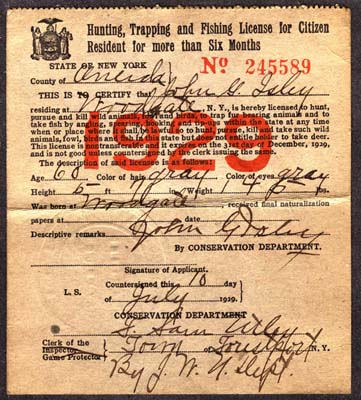 Hunting, Trapping and Fishing License for Citizen
Resident for more than Six Months
STATE OF NEW YORK
County of Oneida
No 245589
THIS IS TO CERTIFY that John G. Isley
residing at Woodgate, N.Y., is hereby licensed to hunt,
pursue and kill wild animals, fowl and birds, to trap fur bearing animals and to
take fish by angling, spearing, hooking, and tip-ups within the state at any time
when or place where it shall be lawful to hunt, pursue, kill and take such wild
animals, fowl, birds and fish in this state but does not entitle holder to take deer.
This license is not transferable and will expire on the 31st day of December, 1929,
and is not good unless countersigned by the clerk issuing the same.
1929
The description of said licensee is as follows:
Age 68 Color of hair gray Color of eyes gray
Height 5 Weight 145
Was born at Woodgate, received final naturalization
papers at date
Descriptive remarks John G Isley
By CONSERVATION DEPARTMENT.
Signature of Applicant.
Countersigned this 10 day
L. S. of July 1929.
CONSERVATION DEPARTMENT
Sam
Clerk of the Town of Forestport N.Y.
Inspector
Game Protector
By J. W. Dept